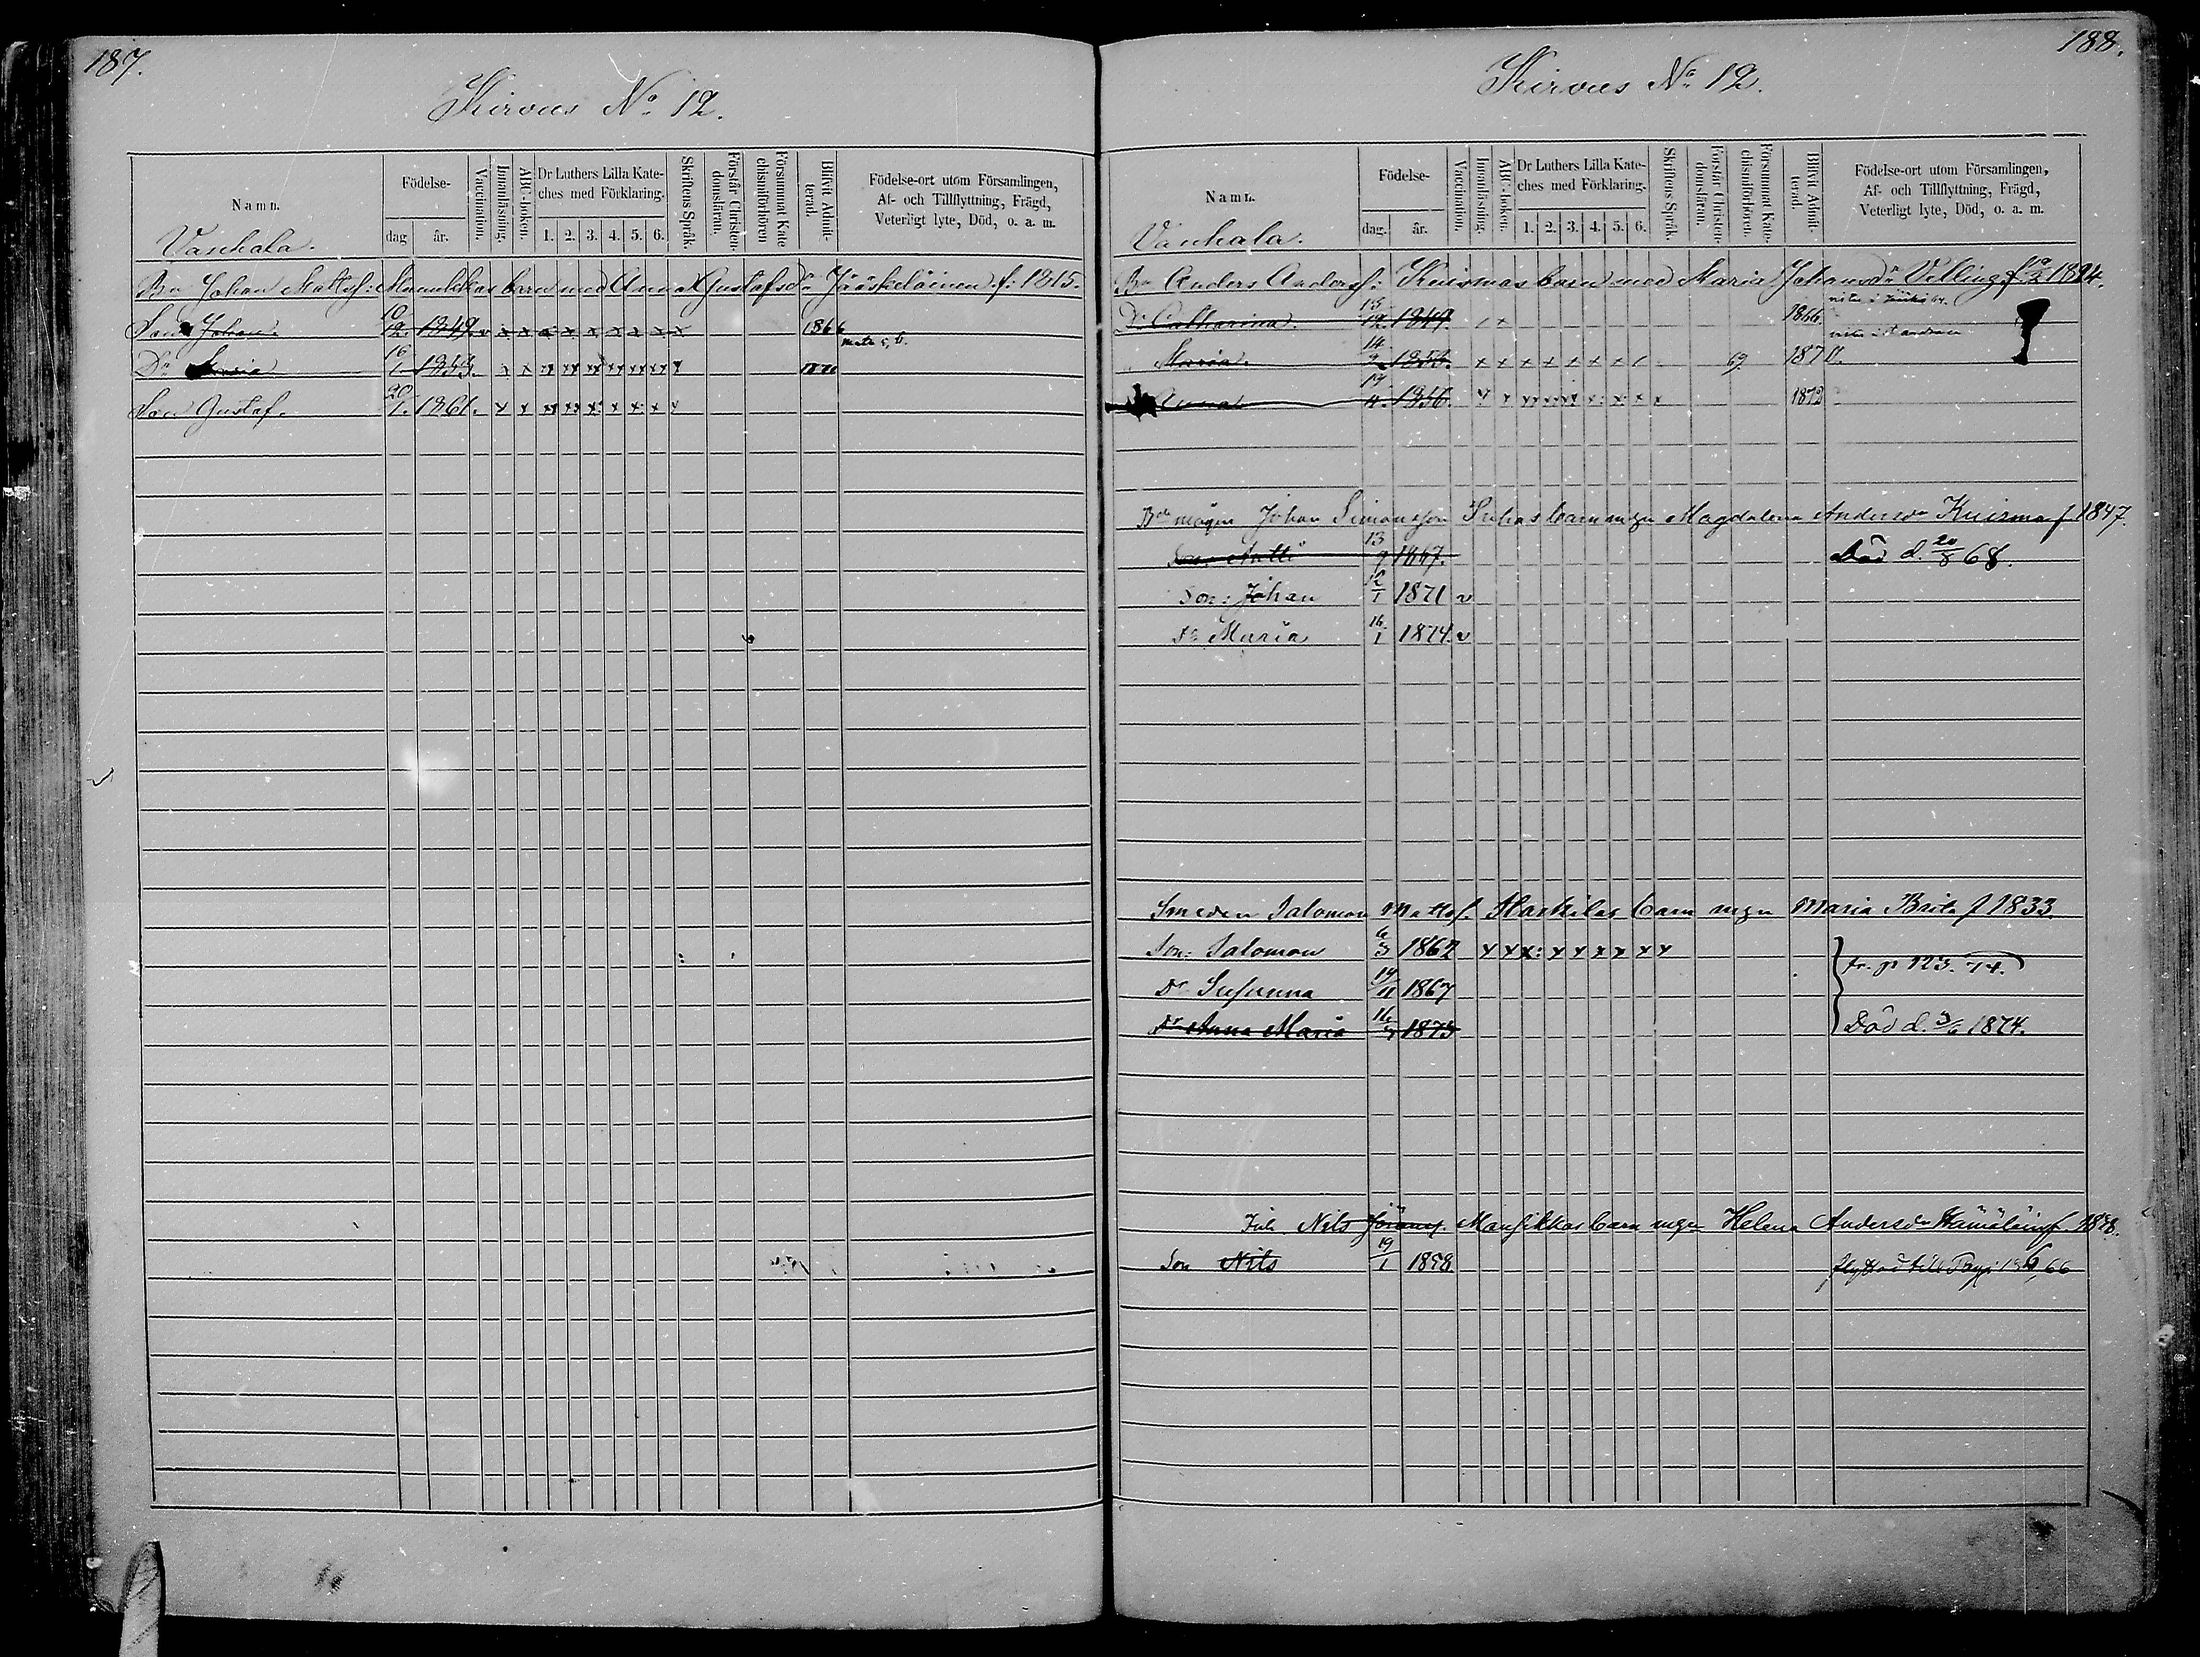 187.
Kirvus No 12.
Namn.
Födelse-
dag
år.
Vaccination.
Innanläsning.
ABC-boken.
Dr Luthers Lilla Kate-
ches med Förklaring.
1. 2. 3. 4. 5. 6.
Skriftens Språk.
Förstår Christen-
domsläran.
Försummat Kate
chismiförhören
Blifvit Admit-
terad.
Födelse-ort utom Församlingen,
Af- och Tillflyttning, Frägd,
Veterligt lyte, Död, o. a. m.
Vanhala.
Bn Johan Mattsf: barn med Anna Gustafsdr Jääskeläinen f: 1815.
Son Johan. 10/12 1849. v x x x x x x x x x 1866
Dr Maria 16/1 1853. x x
Son Gustaf. 20/1. 1861. x x
188.
Kirvus No 12.
Namn.
Födelse-
dag.
år.
Vaccination.
Innanläsning.
ABC-boken.
Dr Luthers Lilla Kate-
ches med Förklaring.
1. 2. 3. 4. 5. 6.
Skriftens Språk.
Förstår Christen-
domsläran.
Försummat Kate-
chismiförhören.
Blifvit Admit-
terad.
Födelse-ort utom Församlingen,
Af- och Tillflyttning, Frägd,
Veterligt lyte, Död, o. a. m.
Vanhala.
Bn Anders Andersf: Kuismas barn med Maria Johansdr Velling f. 1824.
Dr Catharina. 12. 1849. 1866
Maria. 14 x x x x x x x 69 1870.
Anna 19/4. 1856. 1872
Bde mågen Johan Simonsson Suhas barn m. hu Magdalena Andersdr Kuisma f. 1847.
Son: Antti 13/9 1867. Död d. 20/8 68.
Son: Johan 12/1 1871 v
Dr Maria 16/1 1874. v
Smeden Salomon Mattsf. barn m. hu Maria Brita f 1833.
Son: Salomon 6/3 1862 x x x: x x x x x x
Dr Susanna 19/11 1867 tr. p 123. 74.
Dr Anna Maria 16 1873 Död d. 3/6 1874.
Inh. Nils Göransf. Mansikkas barn m. hu Helena Andersdr Hämäläin f.
Son Nils 19/1 1858 flyttad till